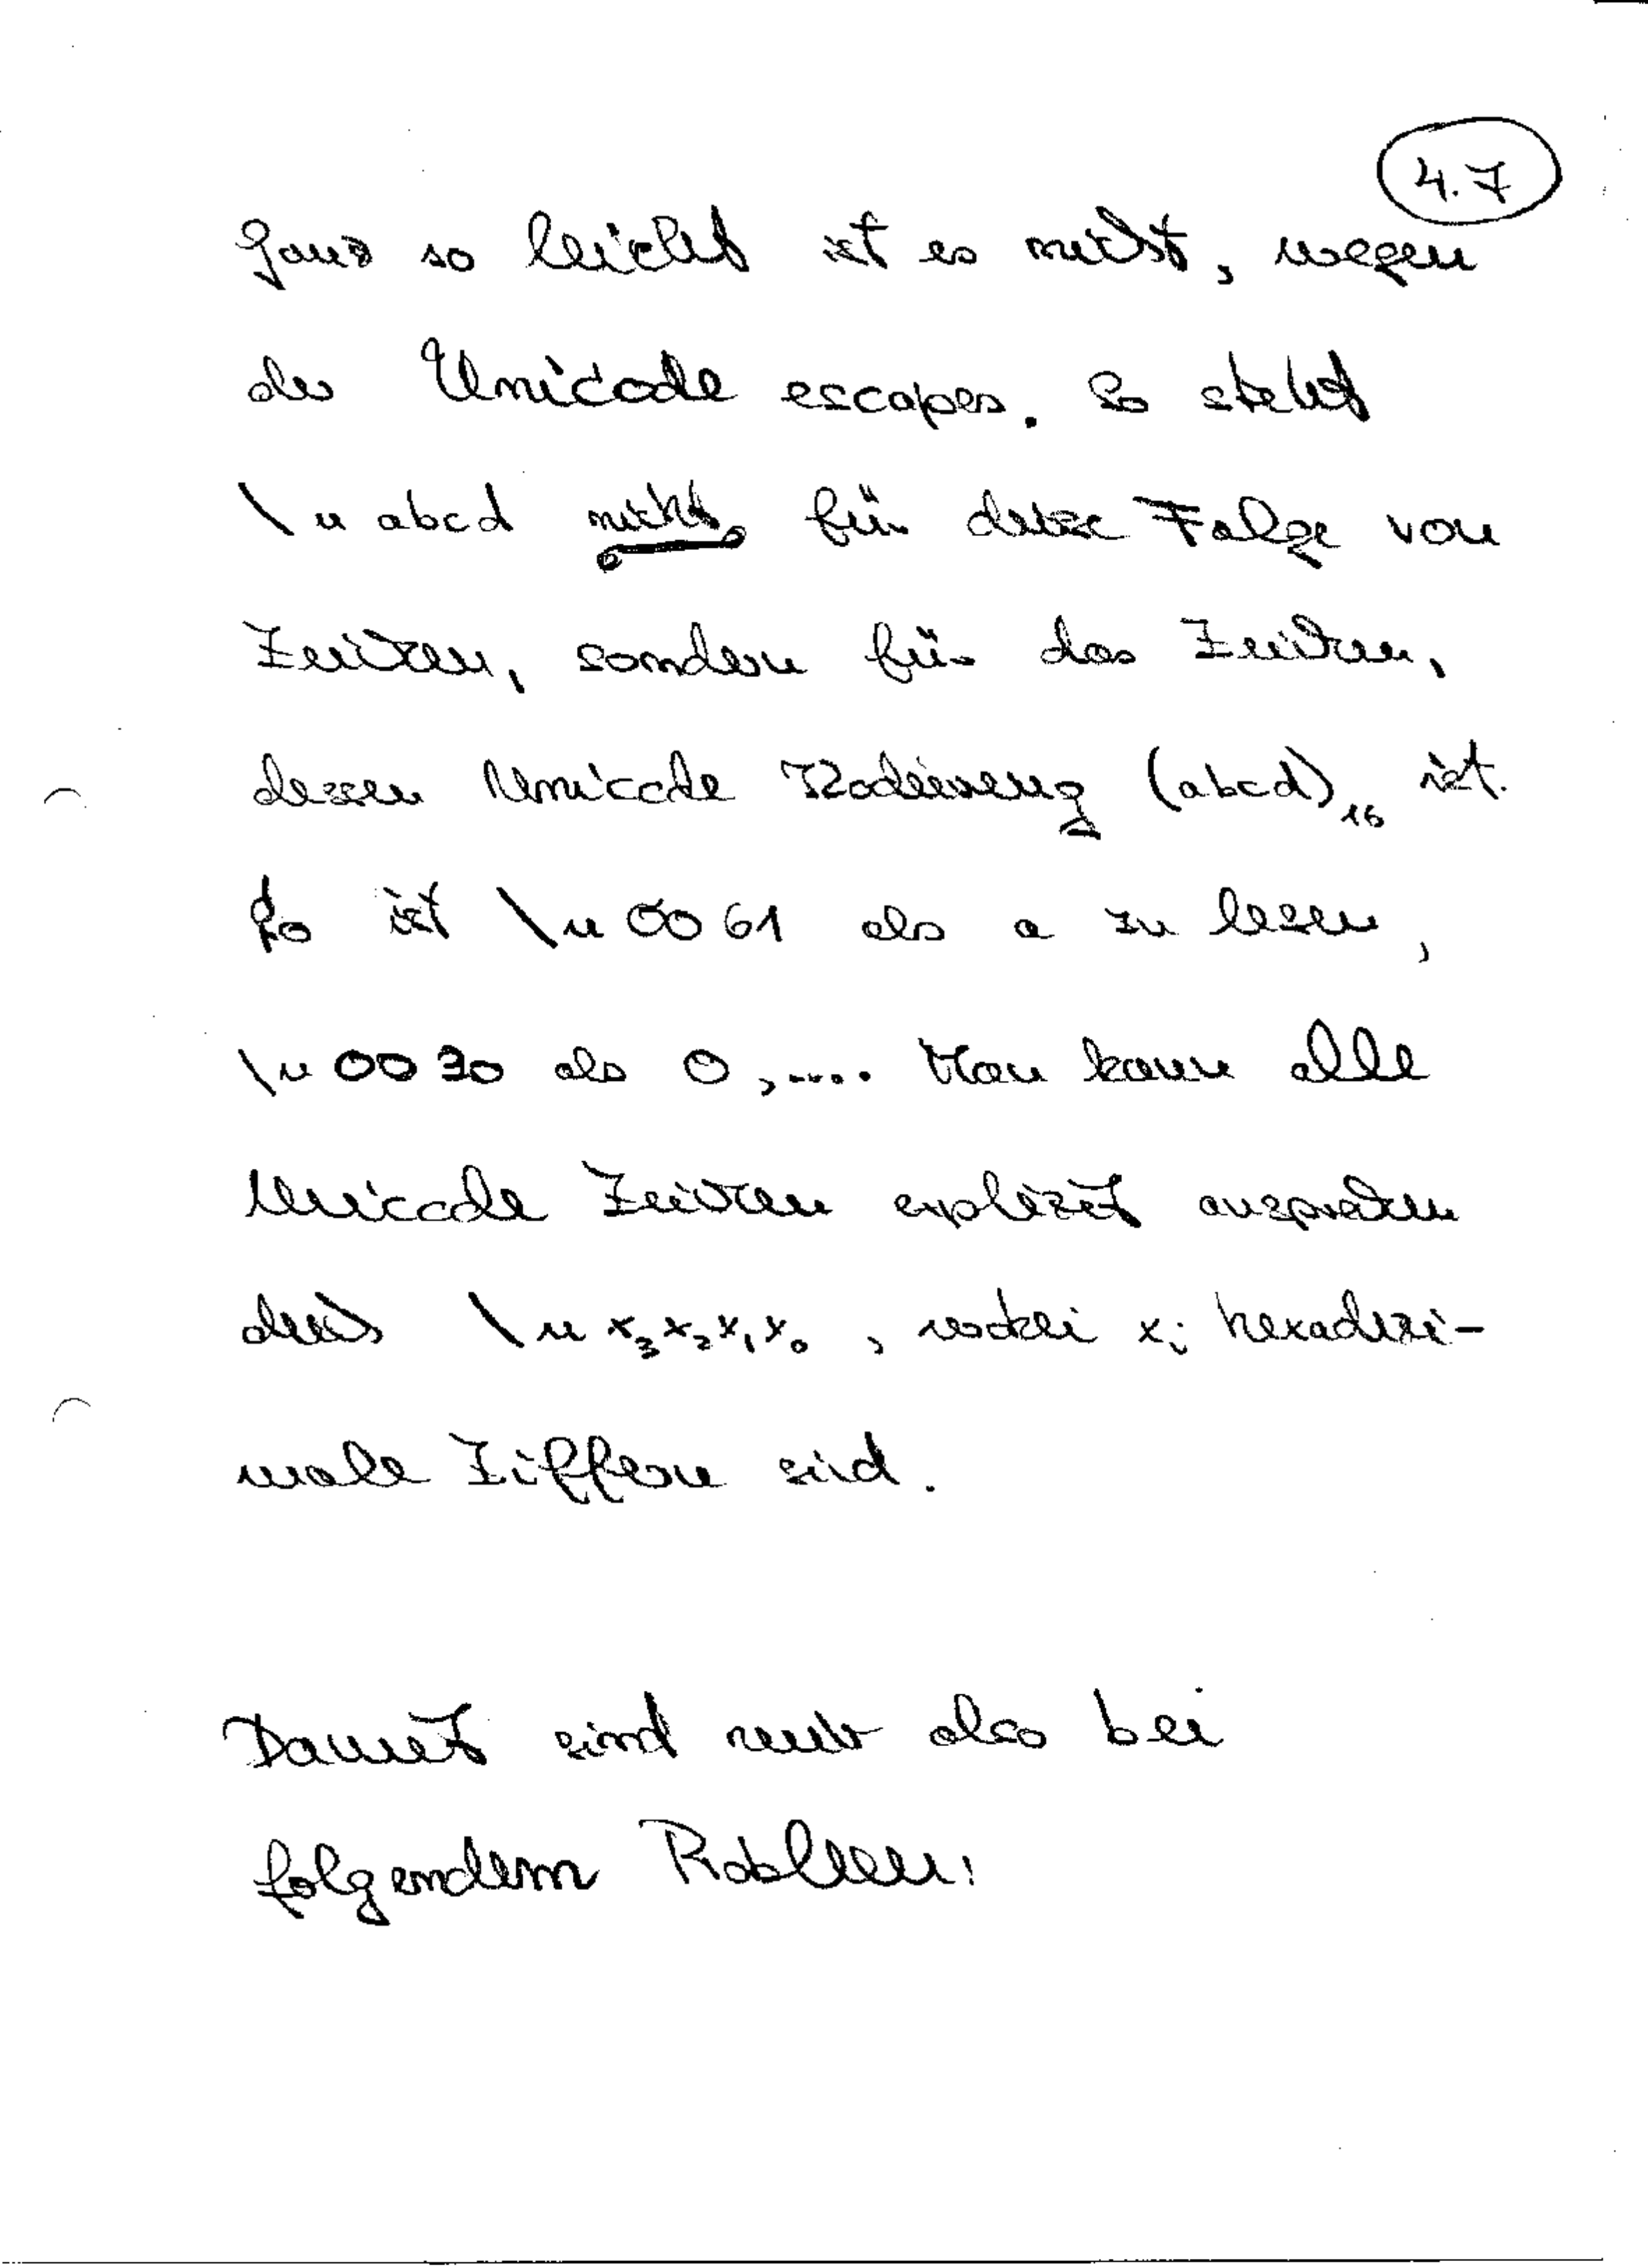 4.7
Ganz so leicht ist es nicht, wegen
der Unicode escapes. So steht
\u abcd nicht für diese Folge von
Zeichen, sondern für das Zeichen,
dessen Unicode Kodierung (abcd)₁₆ ist.
So ist \u 0061 als a zu lesen,
\u 0030 als 0,.... Man kann alle
Unicode Zeichen explizit ansprechen
durch \u x₃x₂x₁x₀, wobei xᵢ hexadezi-
male Ziffern sind.
Damit sind wir also bei
folgendem Problem: